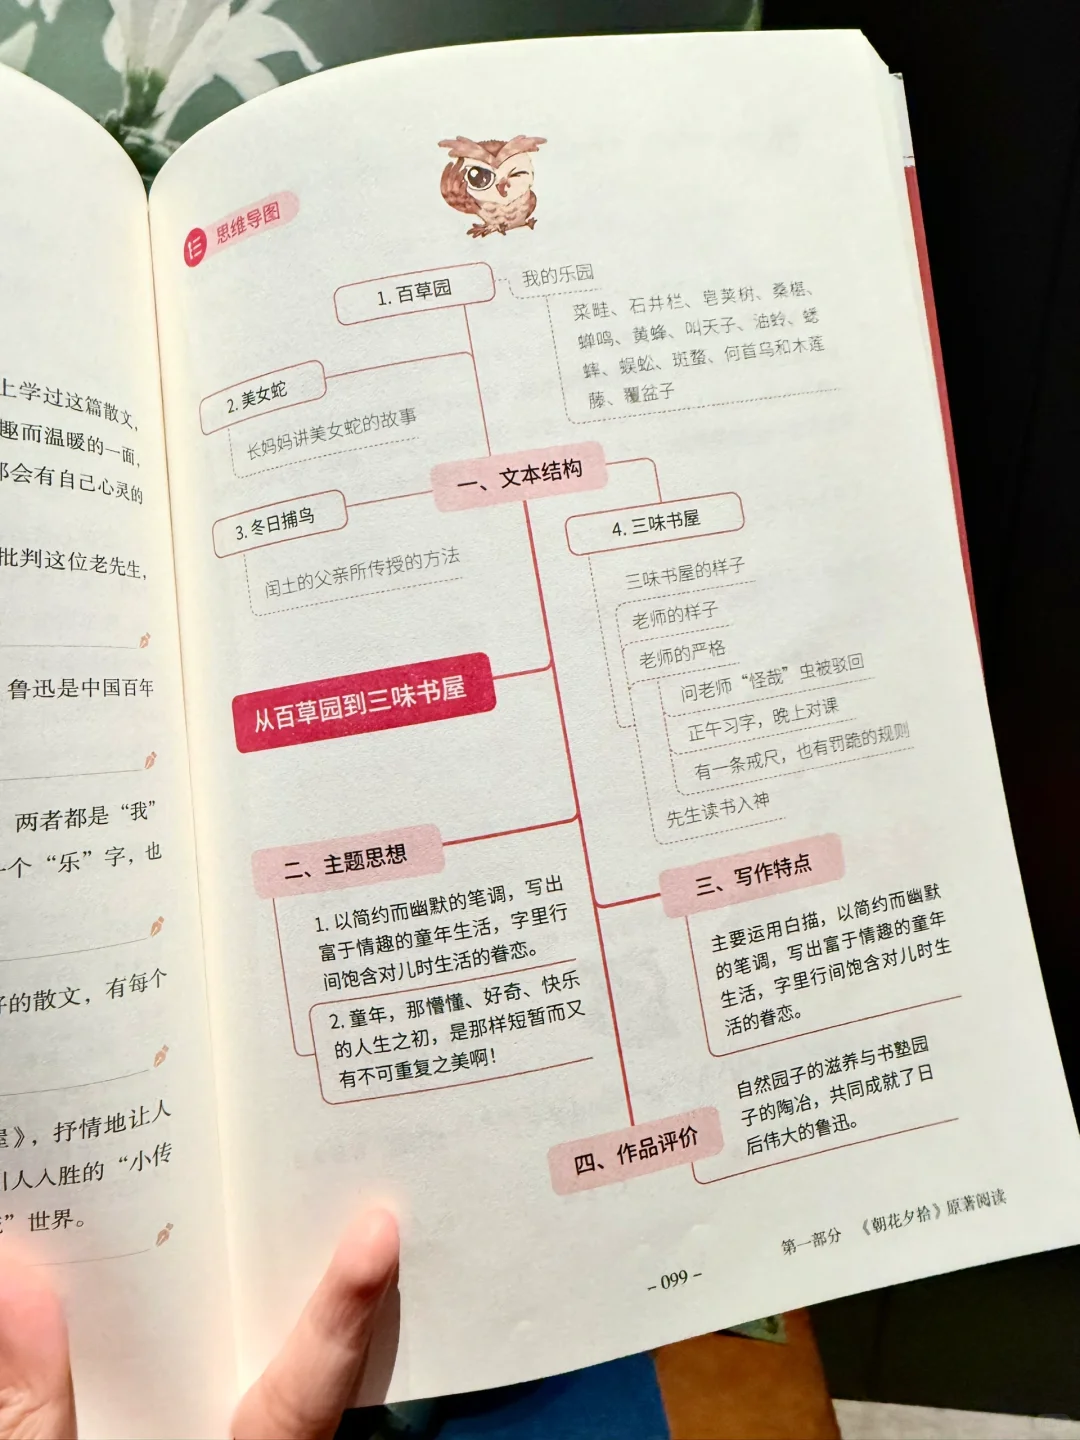 上学过这篇散文,
趣而温暖的一面,
都会有自己心灵的
批判这位老先生,
鲁迅是中国百年
两者都是“我”
个“乐”字,也
的散文,有每个
》,抒情地让人
人入胜的“小传
”世界。
思维导图
1. 百草园
我的乐园
菜畦、石井栏、皂荚树、桑椹、
蝉鸣、黄蜂、叫天子、油蛉、蟋
蟀、蜈蚣、斑蝥、何首乌和木莲
藤、覆盆子
2. 美女蛇
长妈妈讲美女蛇的故事
一、文本结构
3. 冬日捕鸟
闰土的父亲所传授的方法
4. 三味书屋
三味书屋的样子
老师的样子
老师的严格
问老师“怪哉”虫被驳回
正午习字,晚上对课
有一条戒尺,也有罚跪的规则
先生读书入神
从百草园到三味书屋
二、主题思想
1. 以简约而幽默的笔调,写出
富于情趣的童年生活,字里行
间饱含对儿时生活的眷恋。
2. 童年,那懵懂、好奇、快乐
的人生之初,是那样短暂而又
有不可重复之美啊!
三、写作特点
主要运用白描,以简约而幽默
的笔调,写出富于情趣的童年
生活,字里行间饱含对儿时生
活的眷恋。
四、作品评价
自然园子的滋养与书塾园
子的陶冶,共同成就了日
后伟大的鲁迅。
第一部分 《朝花夕拾》原著阅读
– 099 –